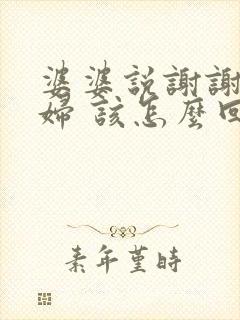 婆婆説謝謝
婦 該怎麼回
素年堇時